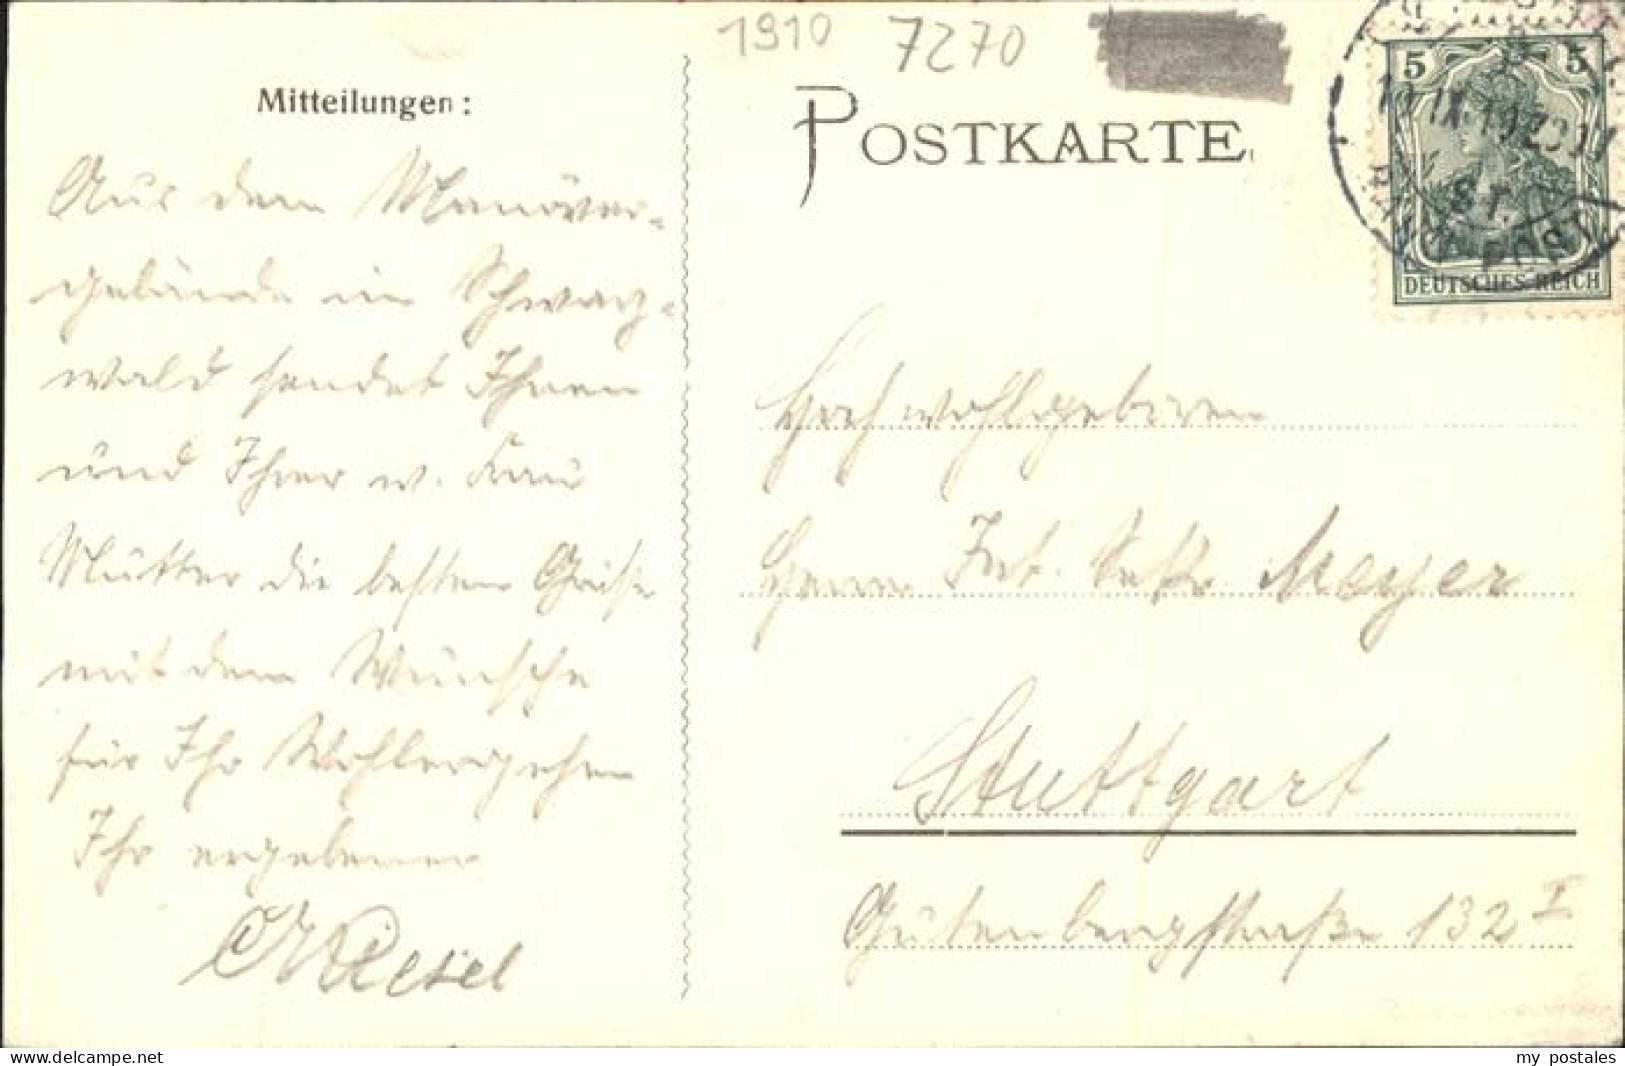 1910 7270
Mitteilungen:
POSTKARTE
5 5
DEUTSCHES REICH
Aus dem Manöver-
gelände im Schwarz-
wald sendet Ihnen
und Ihrer w. Frau
Mutter die besten Grüße
mit dem Wunsche
für Ihr Wohlergehen
Ihr ergebener
Hochwohlgeboren
Herrn Int. Sekr. Meyer
Stuttgart
Gutenbergstraße 132 I
delcampe.net
my postales